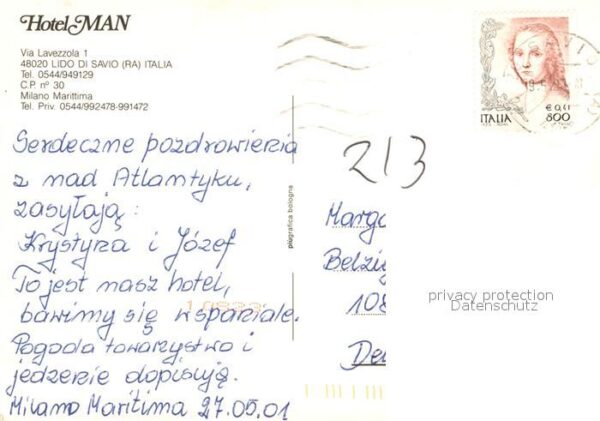 Hotel MAN
Via Lavezzola 1
48020 LIDO DI SAVIO (RA) ITALIA
Tel. 0544/949129
C.P. n° 30
Milano Marittima
Tel. Priv. 0544/992478-991472
Serdeczne pozdrowienia
z nad Atlantyku,
zasyłają:
Krystyna i Józef
To jest nasz hotel,
bawimy się wspaniale.
Pogoda towarzystwo i
jedzenie dopisują.
Milano Maritima 27.05.01
plugrafica bologna
213
€ 0,41
ITALIA 800
Marga
Belzig
108
De
10833
privacy protection
Datenschutz